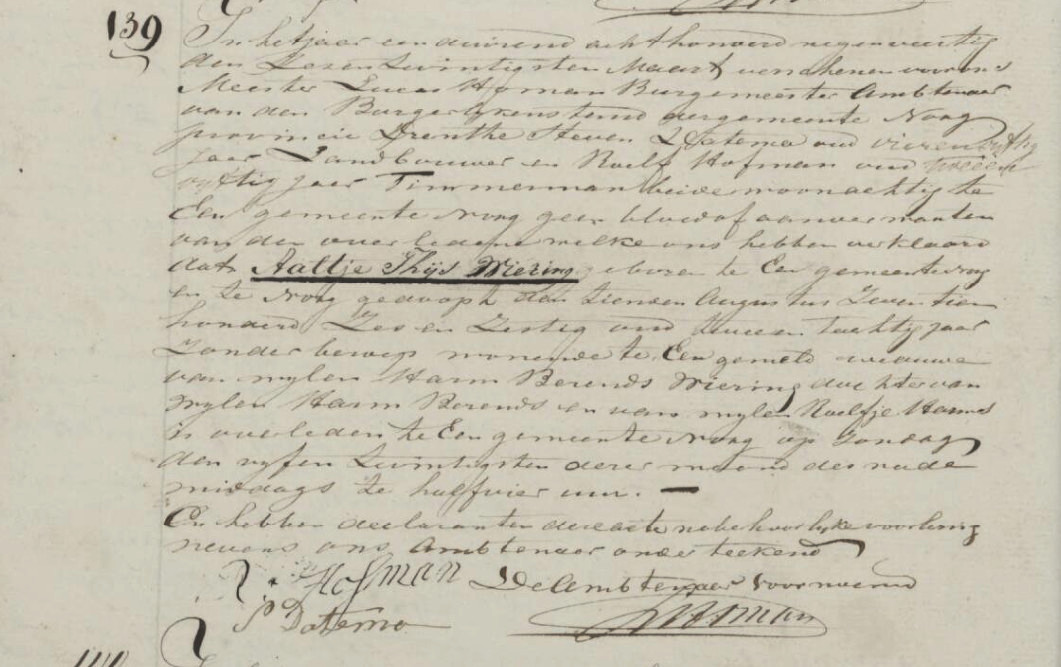 139
In het jaar een duizend acht honderd negen veertig
den Zes en Twintigsten Maart verschenen voor ons
Meester Lucas Homan Burgemeester Ambtenaar
van den Burgerlyken stand der gemeente Norg
provincie Drenthe Steven Datema oud vieren
jaar Landbouwer en Roelf Hofman oud twee en
vyftig jaar Timmerman beide woonachtig te
Een gemeente Norg geen bloed of aanverwanten
van den overledene welke ons hebben verklaard
dat Aaltje Thijs Wiering geboren te Een gemeente Norg
en te Norg gedoopt den tienden Augustus Zeventien
honderd Zes en Zestig oud tachtig jaar
Zonder beroep wonende te Een gemeld weduwe
van wylen Harm Berends Wiering dochter van
wylen Harm Berends en van wylen Roelfje Harms
is overleden te Een gemeente Norg op Zondag
den vyfen Twintigsten dezer maand des nade
middags te half vier uur. —
En hebben declaranten deze acte na behoorlyke voorlezing
nevens ons Ambtenaar onderteekend
R. Hofman De Ambtenaar voornoemd
S Datema Homan
140